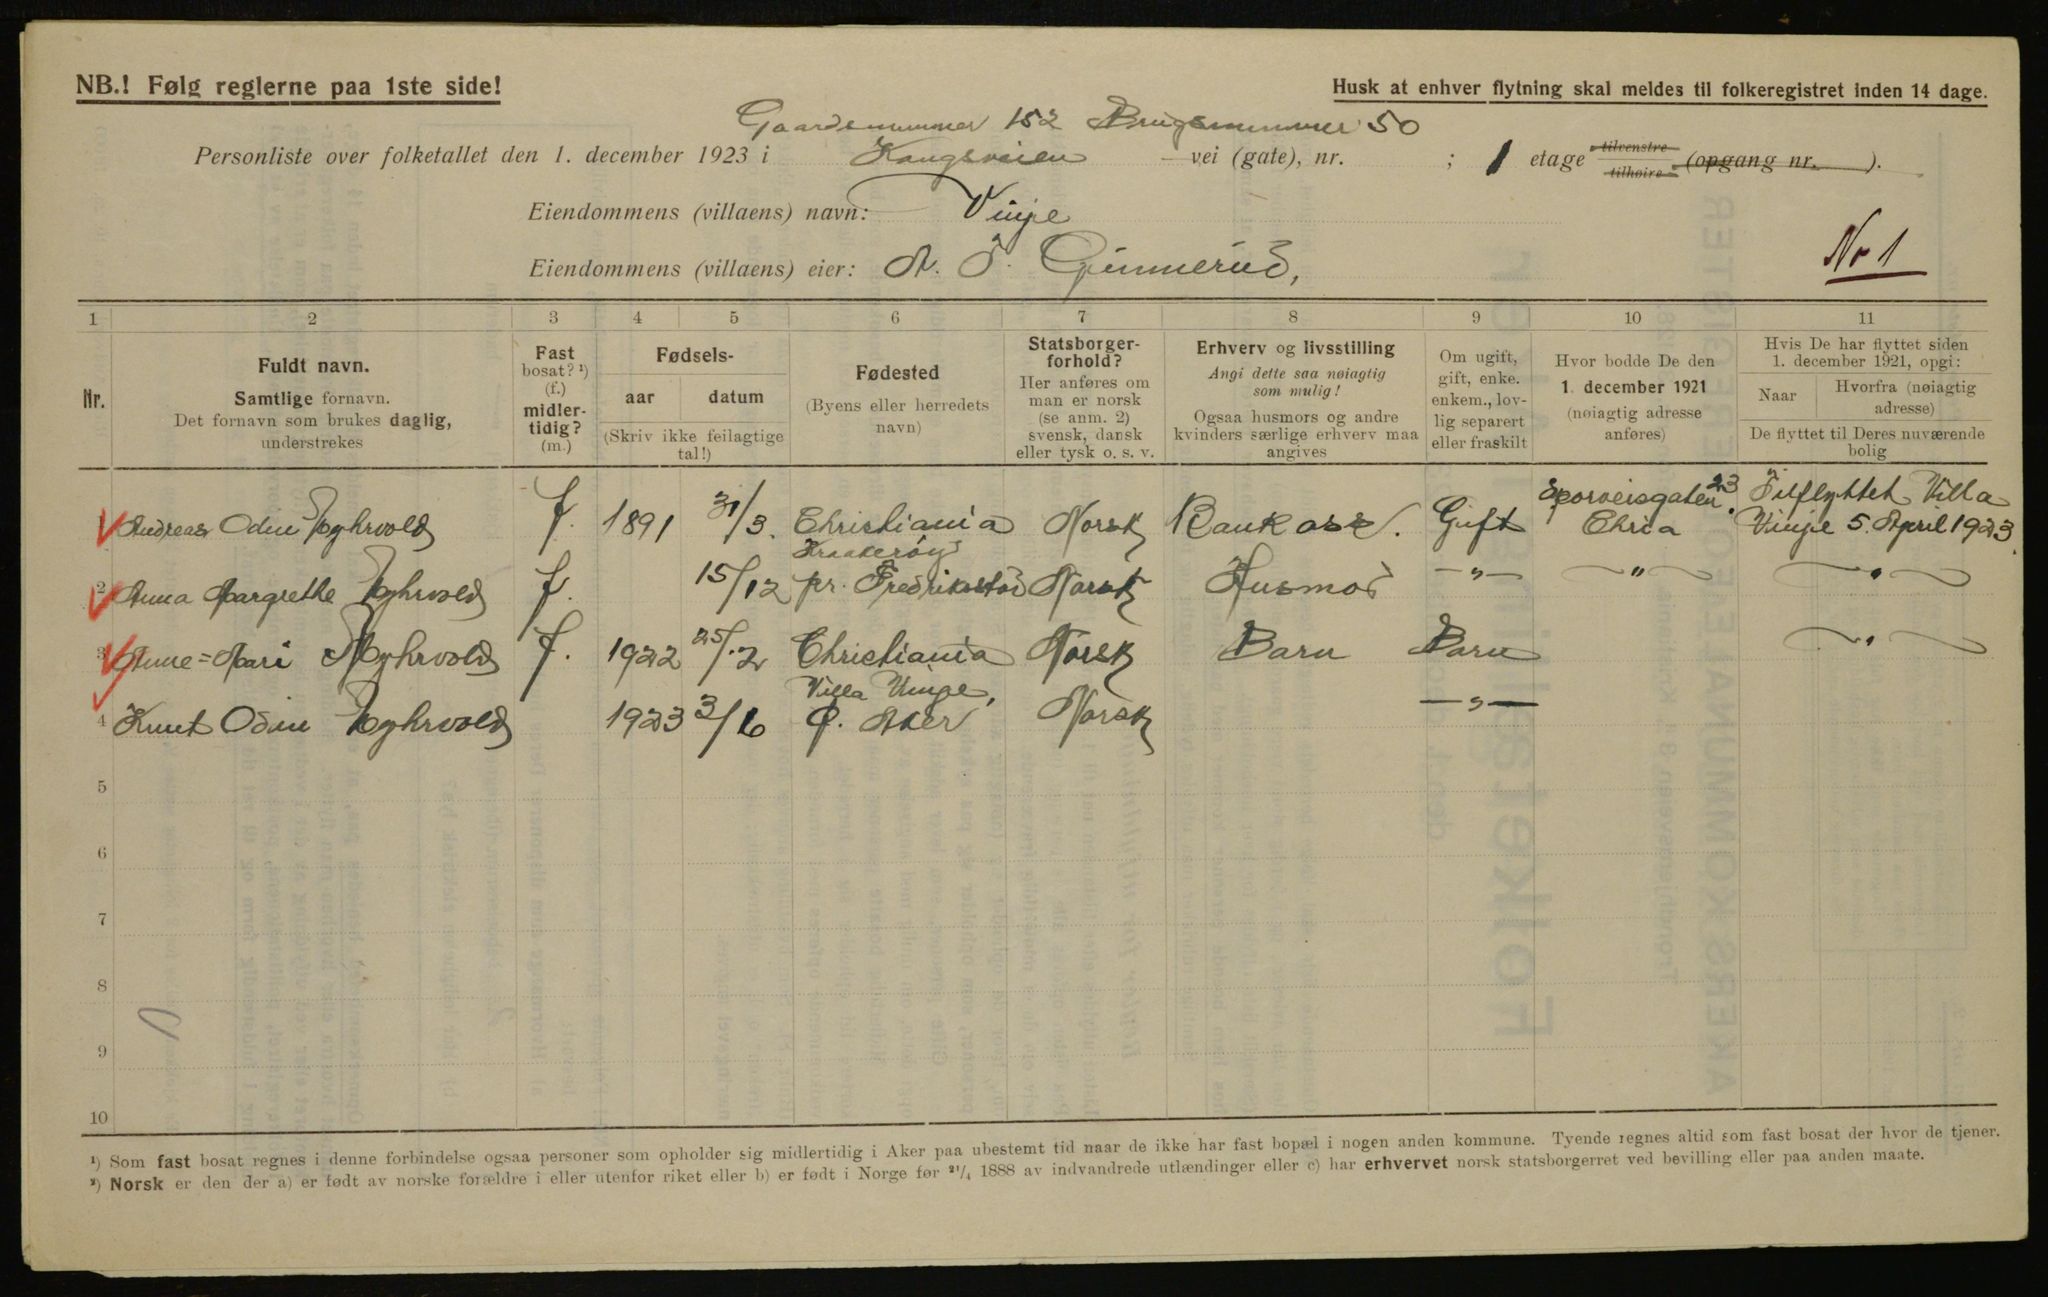 NB.! Følg reglerne paa 1ste side!
Husk at enhver flytning skal meldes til folkeregistret inden 14 dage.
Gaardsnummer 152 Brugsnummer 50
Personliste over folketallet den 1. december 1923 i Kongsveien vei (gate), nr. ; 1 etage tilvenstre tilhøire (opgang nr. ).
Eiendommens (villaens) navn: Vinje
Eiendommens (villaens) eier: A. T. Gunnerud,
No 1
1 2 3 4 5 6 7 8 9 10 11
Nr.
Fuldt navn.
Samtlige fornavn.
Det fornavn som brukes daglig,
understrekes
Fast
bosat? ¹)
(f.)
midler-
tidig?
(m.)
Fødsels-
aar datum
(Skriv ikke feilagtige
tal!)
Fødested
(Byens eller herredets
navn)
Statsborger-
forhold?
Her anføres om
man er norsk
(se anm. 2)
svensk, dansk
eller tysk o. s. v.
Erhverv og livsstilling
Angi dette saa nøiagtig
som mulig!
Ogsaa husmors og andre
kvinders særlige erhverv maa
angives
Om ugift,
gift, enke.
enkem., lov-
lig separert
eller fraskilt
Hvor bodde De den
1. december 1921
(nøiagtig adresse
anføres)
Hvis De har flyttet siden
1. december 1921, opgi:
Naar Hvorfra (nøiagtig
adresse)
De flyttet til Deres nuværende
bolig
Sporveisgaten 23. Tilflyttet Villa
1 Andreas Odin Myhrvold f. 1891 31/3. Christiania Norsk Bankass. Gift Chria Vinje 5. April 1923.
Kraakerøy
2 Anna Margrethe Myhrvold f. 15/12 pr. Fredrikstad Norsk Husmor —"— —"— —"—
3 Anne=Mari Myhrvold f. 1922 25/2 Christiania Norsk Barn Barn —"—
Villa Vinje,
4 Knut Odin Myhrvold 1923 3/6 Ø. Aker Norsk —"—
5
6
7
8
9
10
¹) Som fast bosat regnes i denne forbindelse ogsaa personer som opholder sig midlertidig i Aker paa ubestemt tid naar de ikke har fast bopæl i nogen anden kommune. Tyende regnes altid som fast bosat der hvor de tjener.
²) Norsk er den der a) er født av norske forældre i eller utenfor riket eller b) er født i Norge før ²¹/₄ 1888 av indvandrede utlændinger eller c) har erhvervet norsk statsborgerret ved bevilling eller paa anden maate.